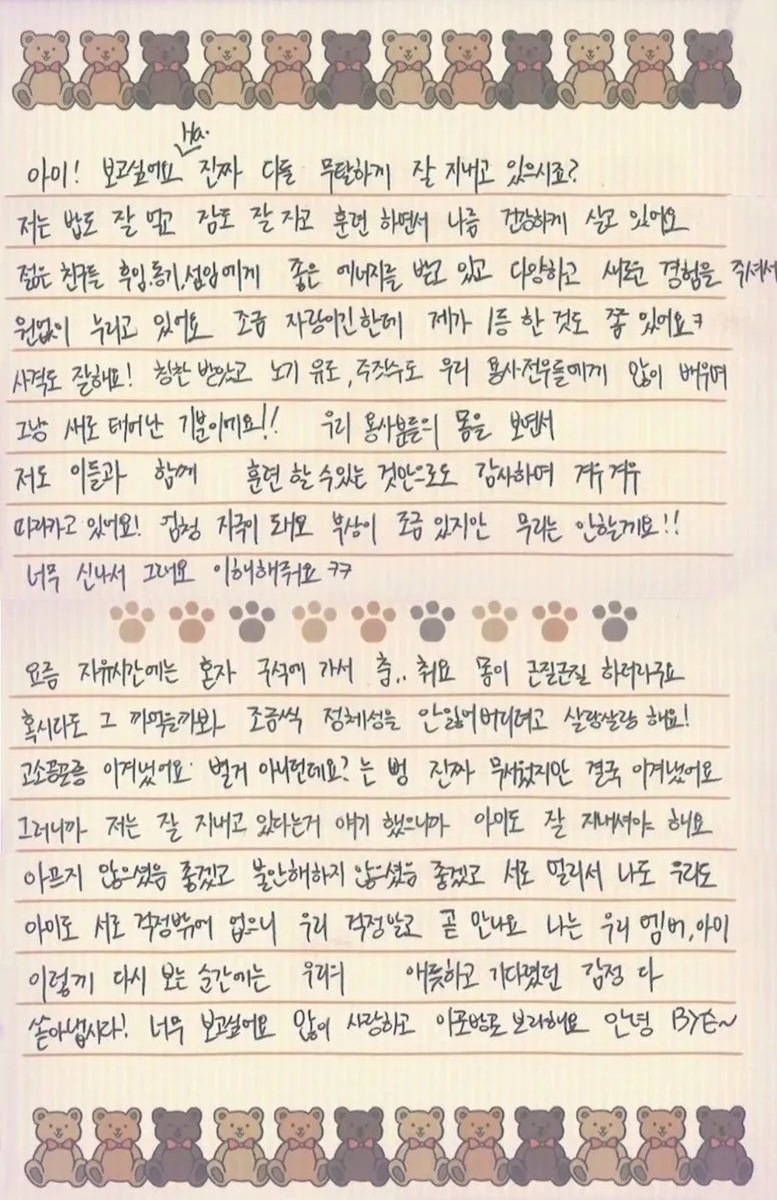 Ha.
아미! 보고싶어요 진짜 다들 무탈하게 잘 지내고 있으시죠?
저는 밥도 잘 먹고 잠도 잘 자고 훈련 하면서 나름 건강하게 살고 있어요
젊은 친구들 후임,동기,선임에게 좋은 에너지를 받고 있고 다양하고 새로운 경험을 주셔서
원없이 누리고 있어요 조금 자랑이긴한데 제가 1등 한 것도 쫌 있어요ㅋ
사격도 잘해요! 칭찬 받았고 노기 유도, 주짓수도 우리 용사전우들에게 많이 배우며
그냥 새로 태어난 기분이에요!! 우리 용사분들의 몸을 보면서
저도 이들과 함께 훈련 할 수 있는 것만으로도 감사하며 겨우겨우
따라가고 있어요! 엄청 자극이 돼요 부상이 조금 있지만 무리는 안할게요!!
너무 신나서 그래요 이해해줘요 ㅋㅋ
요즘 자유시간에는 혼자 구석에 가서 춤.. 춰요 몸이 근질근질 하더라구요
혹시라도 그 까먹을까봐 조금씩 정체성을 안잃어버리려고 살랑살랑 해요!
고소공포증 이겨냈어요 별거 아니던데요? 는 뻥 진짜 무서웠지만 결국 이겨냈어요
그러니까 저는 잘 지내고 있다는거 얘기 했으니까 아미도 잘 지내셔야 해요
아프지 않으셨음 좋겠고 불안해하지 않으셨음 좋겠고 서로 멀리서 나도 우리도
아미도 서로 걱정밖에 없으니 우리 걱정말고 곧 만나요 나는 우리 멤버,아미
이렇게 다시 보는 순간에는 우리의 애틋하고 기다렸던 감정 다
쏟아냅시다! 너무 보고싶어요 많이 사랑하고 아포방포 보라해요 안녕 BYE~